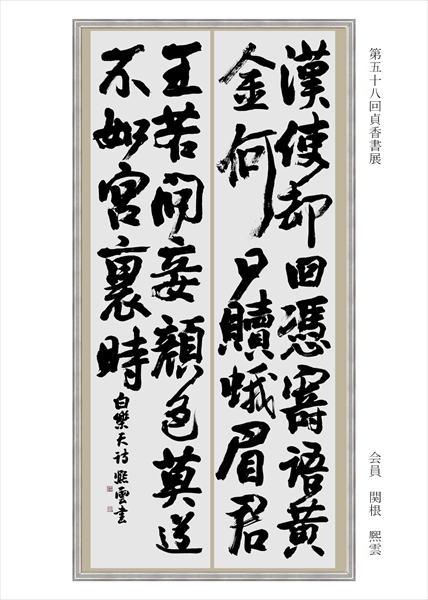 第五十八回貞香書展
会員 関根 熙雲
漢使却回憑寄語黄
金何日贖蛾眉君
王若問妾顔色莫道
不如宮裏時
白樂天詩 熙雲書